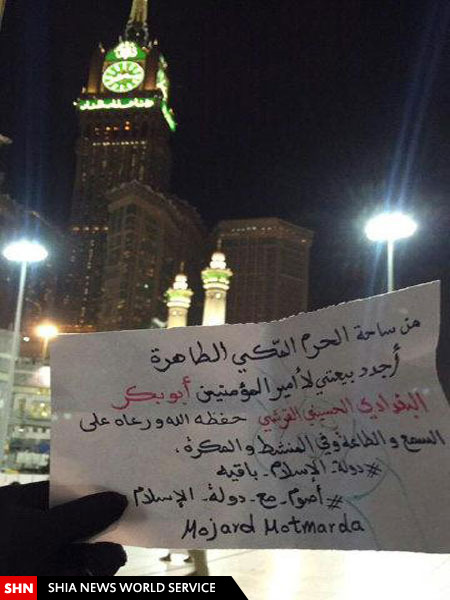 من ساحة الحرم المكي الطاهرة
أجدد بيعتي لأمير المؤمنين أبو بكر
البغدادي الحسيني القرشي حفظه الله ورعاه على
السمع والطاعة وفي المنشط والمكرة،
#دولة-الإسلام-باقيه
#أصوم-مع-دولة-الإسلام
Mojard Motmarda
SHN SHIA NEWS WORLD SERVICE